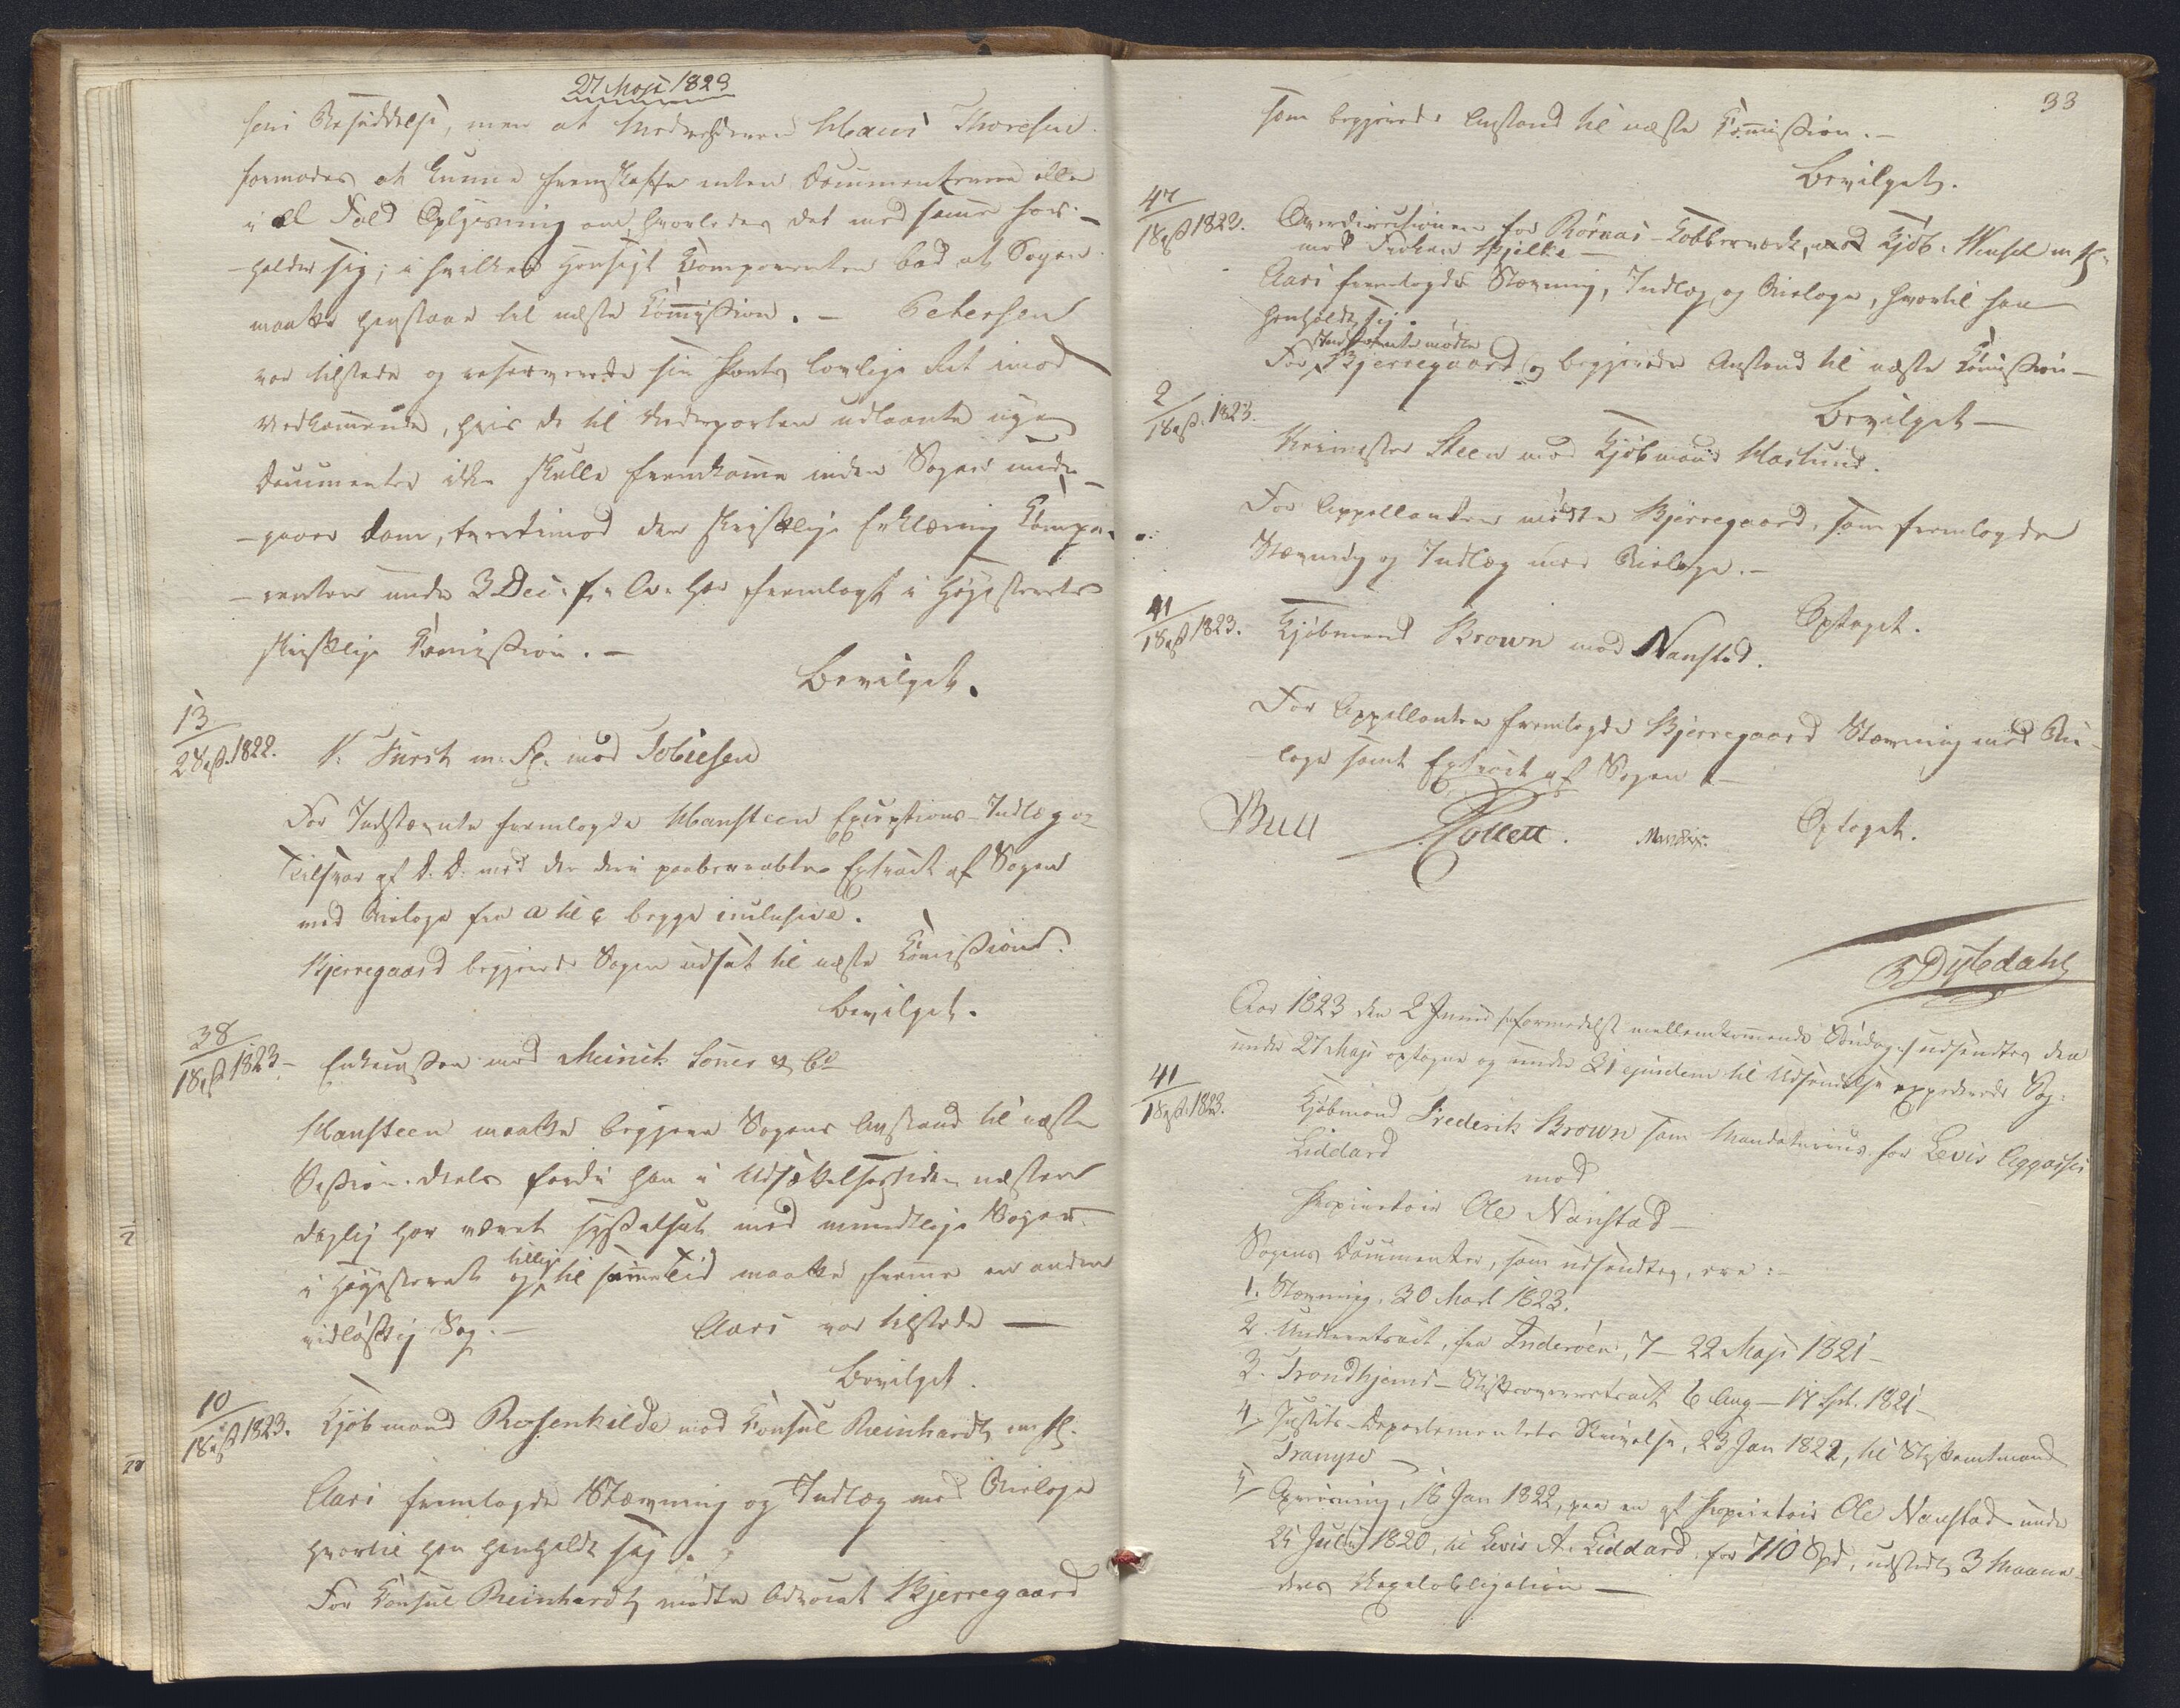 27 Maji 1823
hans Besiddelse, men at Underskriveren Hans Thoresen
formodes at kunne fremskaffe enten Documenterne eller
i al Fald Oplysning om, hvorledes det med samme for-
-holder sig; i hvilken Hensigt Comparenten bad at Sagen
maatte henstaae til næste Commission. – Petersen
var tilstede og reserverede sin Parts lovlige Ret imod
Vedkommende, hvis de til Modparten udlaante
Documenter ikke skulle fremkomme inden Sagen unde-
-gaaer Dom, tvertimod den skriftlige Erklæring Compa-
-renten under 3 Dec: f: A: har fremlagt i Høiesterets
skriftlige Commission. –
Bevilget.
13
28ß. 1822.
V. Fürst m: Fl: mod Tobiesen
For Indstævnte fremlagde Hansteen Exceptions-Indlæg og
Tilsvar af D. D. med der deri paaberaabte Extract af Sagen
med Bielage fra a til c begge inclusive.
Bjerregaard begjerede Sagen udsat til næste Commission.
Bevilget.
38
18ß 1823 –
Enkensken mod Meinich Sønner & Co
Hansteen maatte begjere Sagens Anstand til næste
Session, deels fordi han i Udsættelsestiden næsten
daglig har været sysselsat med mundtlige Sager
i Høiesteret og tillige til samme Tid maatte fremme en anden
vidløftig Sag. – Aars var tilstede –
Bevilget.
10
18ß 1823.
Kjøbmand Rosenkilde mod Consul Reinhardt m fl.
Aars fremlagde Stævning og Indlæg med Bielage
hvortil han henholdt sig.
For Consul Reinhardt mødte Advocat Bjerregaard
33
som begjerede Anstand til næste Commission. –
Bevilget.
47
18ß 1822.
Overdirectionen for Røraas-Kobberværk, mod Kjøb: Wensel m fl:
mod Enken Hjelte –
Aars fremlagde Stævning, Indlæg og Bielage, hvortil han
henholdt sig.
For Indstævnte mødte Bjerregaard og begjerede Anstand til næste Commission –
Bevilget –
2
18ß. 1823.
Steen mod Kjøbmand Haslund.
For Appellanten mødte Bjerregaard, som fremlagde
Stævning og Indlæg med Bielage. –
Optaget.
41
18ß 1823.
Kjøbmand Brown mod Nanstad.
For Appellanten fremlagde Bjerregaard Stævning med Bie-
-lage samt Extract af Sagen –
Optaget.
Bull Collett. Mandix.
Dybdahl
Aar 1823 den 2 Junii (formedelst mellemkommende Søndag) udsendtes den
under 27 Maji optagne og under 31 ejusdem til Udsendelse expederede Sag:
41
18ß. 1823.
Kjøbmand Frederik Brown som Mandatarius for Levis Aggassis
Liddard
mod
Proprietair Ole Nanstad –
Sagens Documenter, som udsendtes, ere: –
1. Stævning, 30 Mart 1823.
2. Underetsact, fra Inderøen, 7 – 22 Maji 1821 –
3. Trondhjems – Stiftsoverretsact 6 Aug – 17 Sept. 1821 –
4. Justits-Departementets Skrivelse, 23 Jan 1822, til Stiftamtmand
Trampe –
5 Anviisning, 16 Jan 1822, paa en af Proprietair Ole Nanstad under
25 Julii 1820, til Levis A. Liddard, for 710 Spd, udstedt 3 Maane-
-ders Vexelobligation –